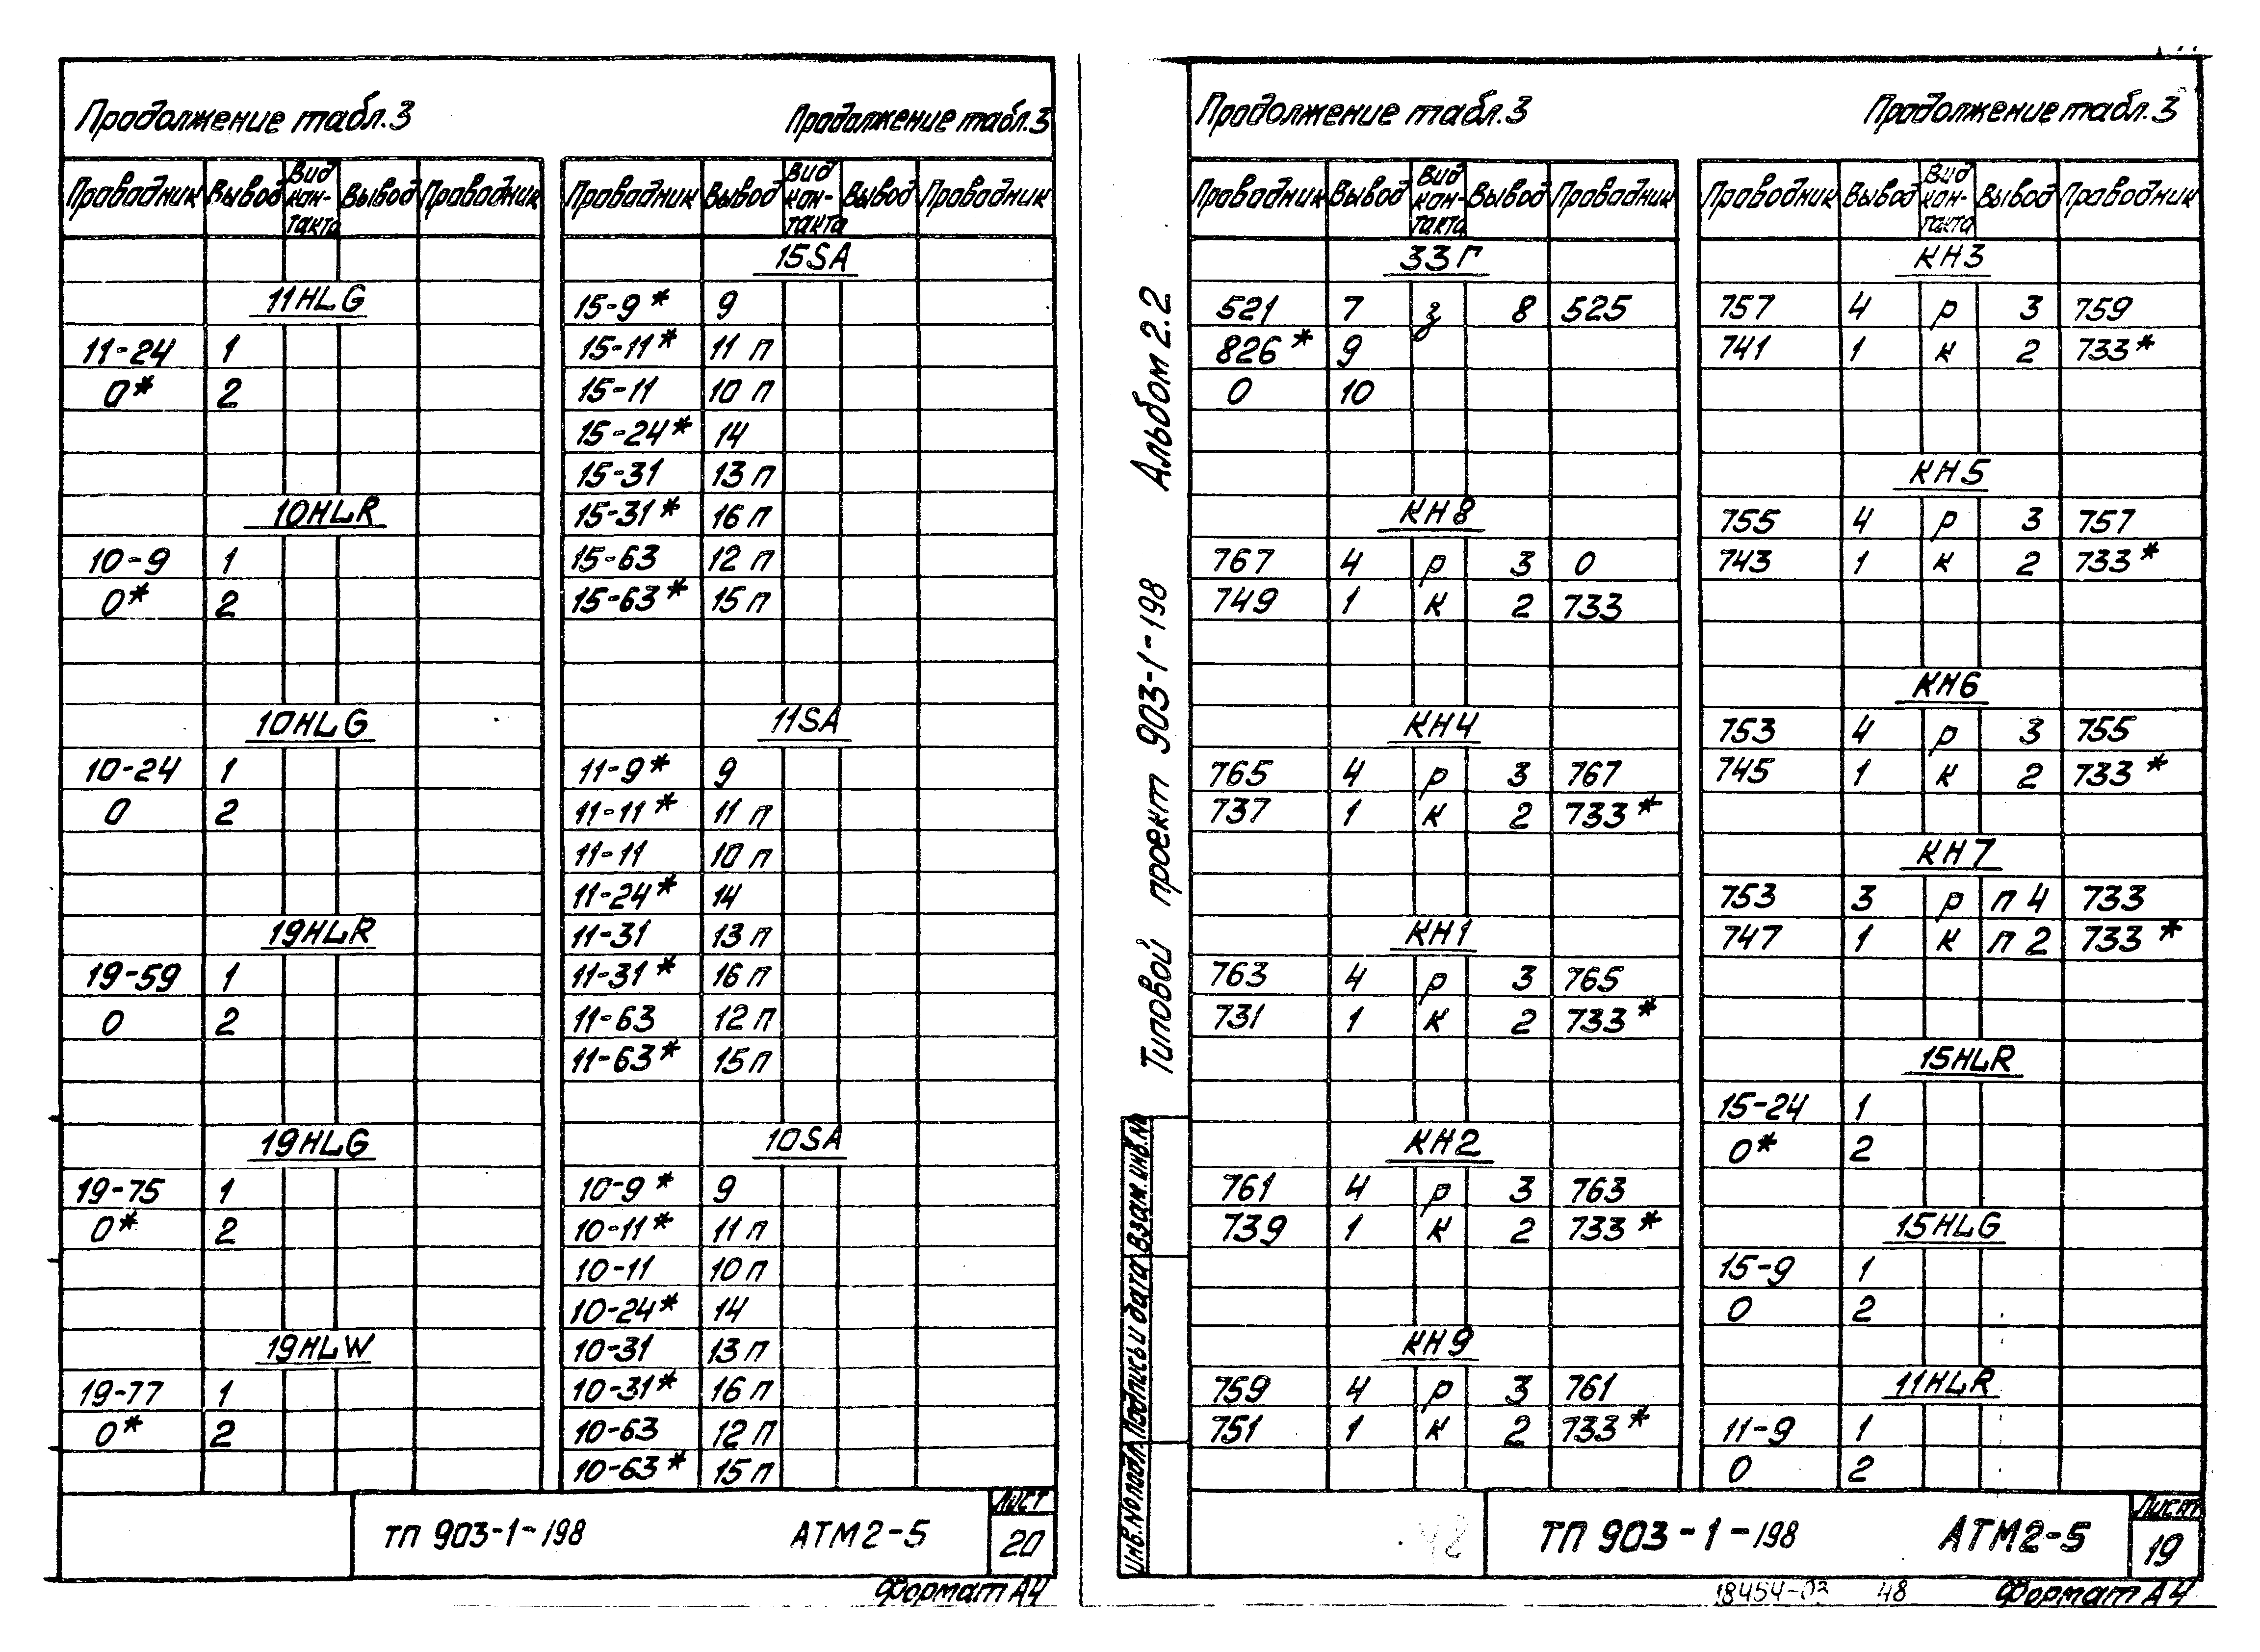 Продолжение табл.3
Проводник Вывод Вид кон-такта Вывод Проводник
11HLG
11-24 1
0* 2
10HLR
10-9 1
0* 2
10HLG
10-24 1
0 2
19HLR
19-59 1
0 2
19HLG
19-75 1
0* 2
19HLW
19-77 1
0* 2
Продолжение табл.3
Проводник Вывод Вид кон-такта Вывод Проводник
15SA
15-9* 9
15-11* 11 п
15-11 10 п
15-24* 14
15-31 13 п
15-31* 16 п
15-63 12 п
15-63* 15 п
11SA
11-9* 9
11-11* 11 п
11-11 10 п
11-24* 14
11-31 13 п
11-31* 16 п
11-63 12 п
11-63* 15 п
10SA
10-9* 9
10-11* 11 п
10-11 10 п
10-24* 14
10-31 13 п
10-31* 16 п
10-63 12 п
10-63* 15 п
ТП 903-1-198 АТМ2-5
Лист
20
Формат А4
Альбом 2.2
Типовой проект 903-1-198
Взам. инв. №
Подпись и дата
Инв. № подл.
Продолжение табл.3
Проводник Вывод Вид кон-такта Вывод Проводник
33Г
521 7 з 8 525
826* 9
0 10
КН8
767 4 р 3 0
749 1 к 2 733
КН4
765 4 р 3 767
737 1 к 2 733*
КН1
763 4 р 3 765
731 1 к 2 733*
КН2
761 4 р 3 763
739 1 к 2 733*
КН9
759 4 р 3 761
751 1 к 2 733*
Продолжение табл.3
Проводник Вывод Вид кон-такта Вывод Проводник
КН3
757 4 р 3 759
741 1 к 2 733*
КН5
755 4 р 3 757
743 1 к 2 733*
КН6
753 4 р 3 755
745 1 к 2 733*
КН7
753 3 р п 4 733
747 1 к п 2 733*
15HLR
15-24 1
0* 2
15HLG
15-9 1
0 2
11HLR
11-9 1
0 2
42
ТП 903-1-198 АТМ2-5
Лист
19
18454-03 48
Формат А4